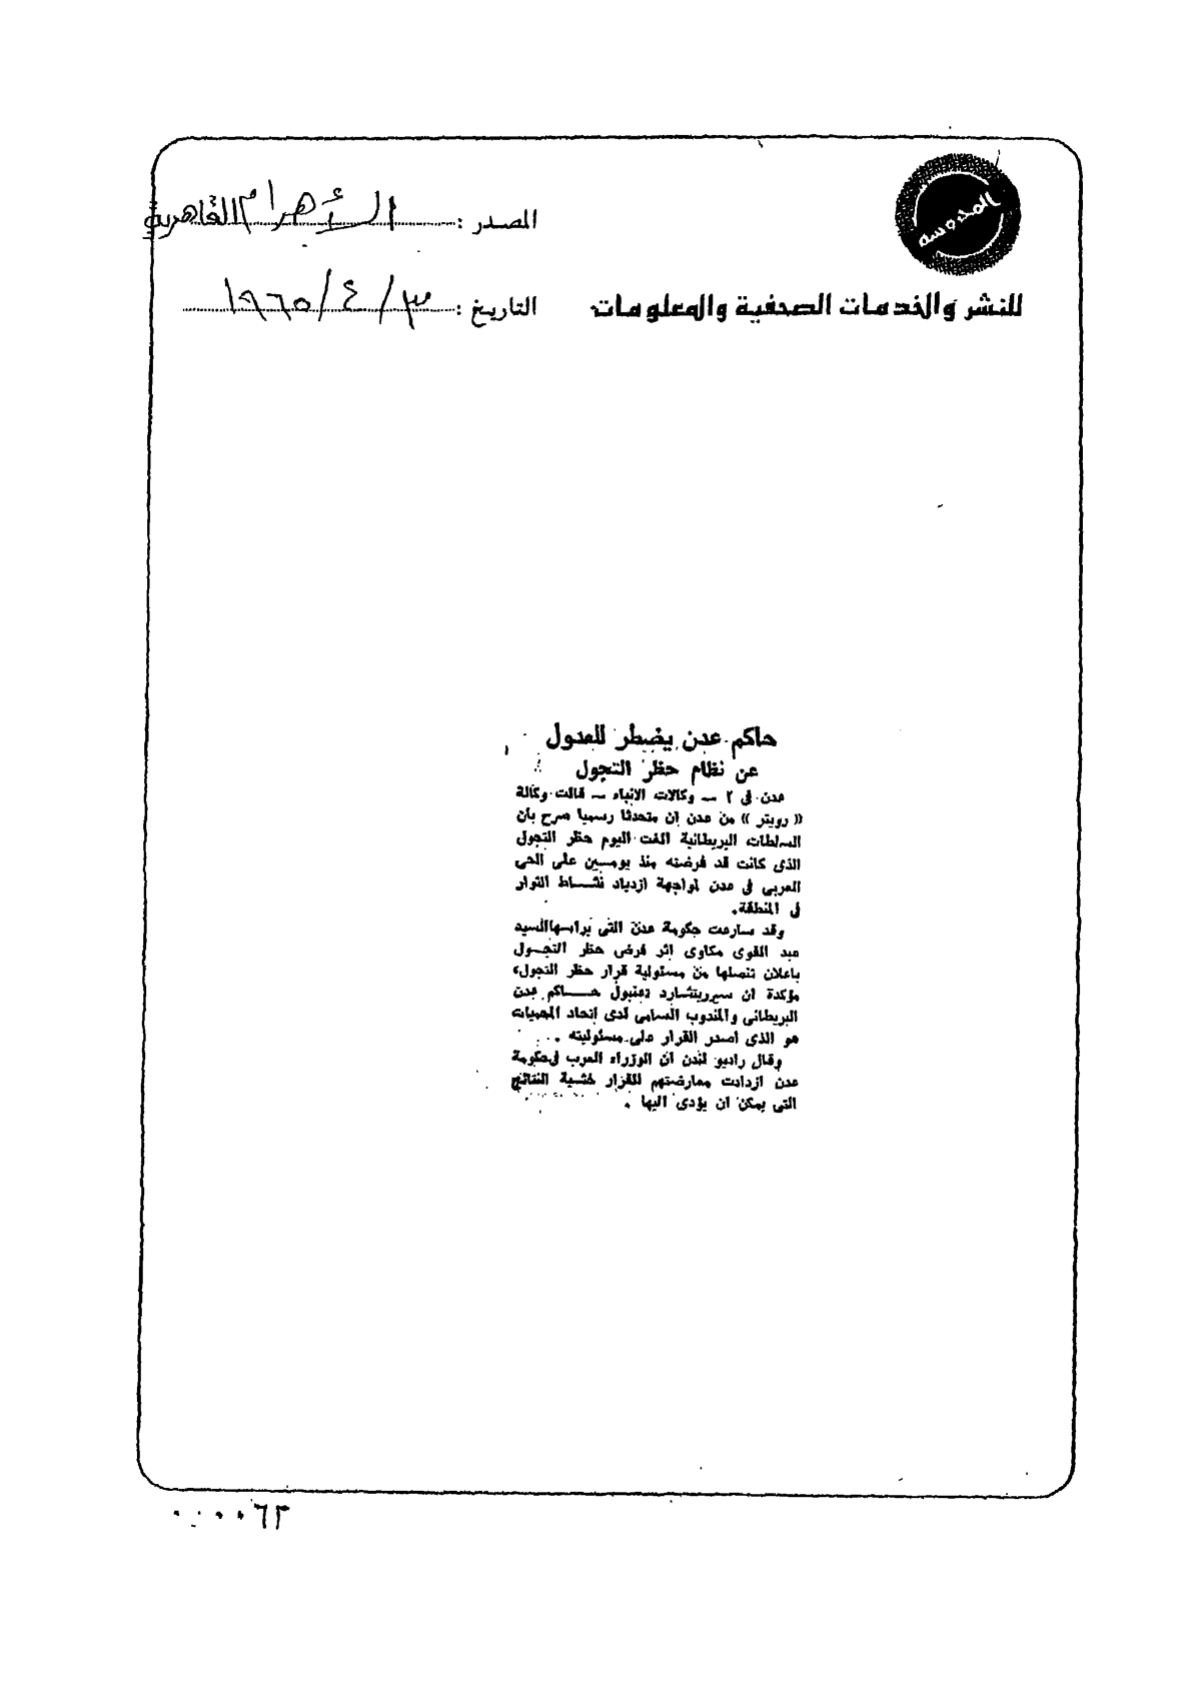 المحروسة
المصدر : الأهرام القاهرية
للنشر والخدمات الصحفية والمعلومات
التاريخ : ٣ / ٤ / ١٩٦٥
حاكم عدن يضطر للعدول
عن نظام حظر التجول
عدن في ٢ — وكالات الانباء — قالت وكالة
« رويتر » من عدن ان متحدثا رسميا صرح بأن
السلطات البريطانية الغت اليوم حظر التجول
الذى كانت قد فرضته منذ يومين على الحى
العربى فى عدن لمواجهة ازدياد نشاط الثوار
فى المنطقة.
وقد سارعت حكومة عدن التى يراسها السيد
عبد القوى مكاوى اثر فرض حظر التجول
باعلان تنصلها من مسئولية قرار حظر التجول،
مؤكدة ان سيرريتشارد تيرنبول حاكم عدن
البريطانى والمندوب السامى لدى اتحاد المحميات
هو الذى أصدر القرار على مسئوليته .
وقال راديو لندن ان الوزراء العرب فى حكومة
عدن ازدادت معارضتهم للقرار خشية النتائج
التى يمكن ان يؤدى اليها .
٠٠٠٠٦٣